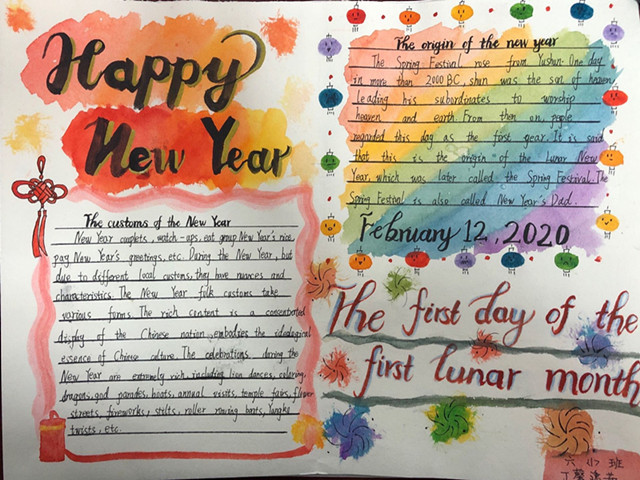 Happy
New Year
The customs of the New Year
New Year couplets, watch-aps, eat group New Year's rice,
pag New Year's greetings, etc. During the New Year, but
due to different local customs, they have nuances and
characteristics. The New Year folk customs take
various forms. The rich content is a concentrated
display of the Chinese nation embodies the ideological
essence of Chinese culture. The celebrations during the
New Year are extremely rich, including lion dances, coloring,
dragons, god parades, boats, annual visits, temple fairs, flower
streets, fireworks, stilts, roller rowing boats, Yangko
twists, etc.
The origin of the new year
The Spring Festival rose from Yushun. One day
in more than 2000 BC, shun was the son of heaven
leading his subordinates to worship
heaven and earth. From then on, people
regarded this day as the first year. It is said
that this is the origin of the Lunar New
Year, which was later called the Spring Festival. The
Spring Festival is also called New Year's Dad.
February 12, 2020
The first day of the
first lunar month
六 小 班
丁